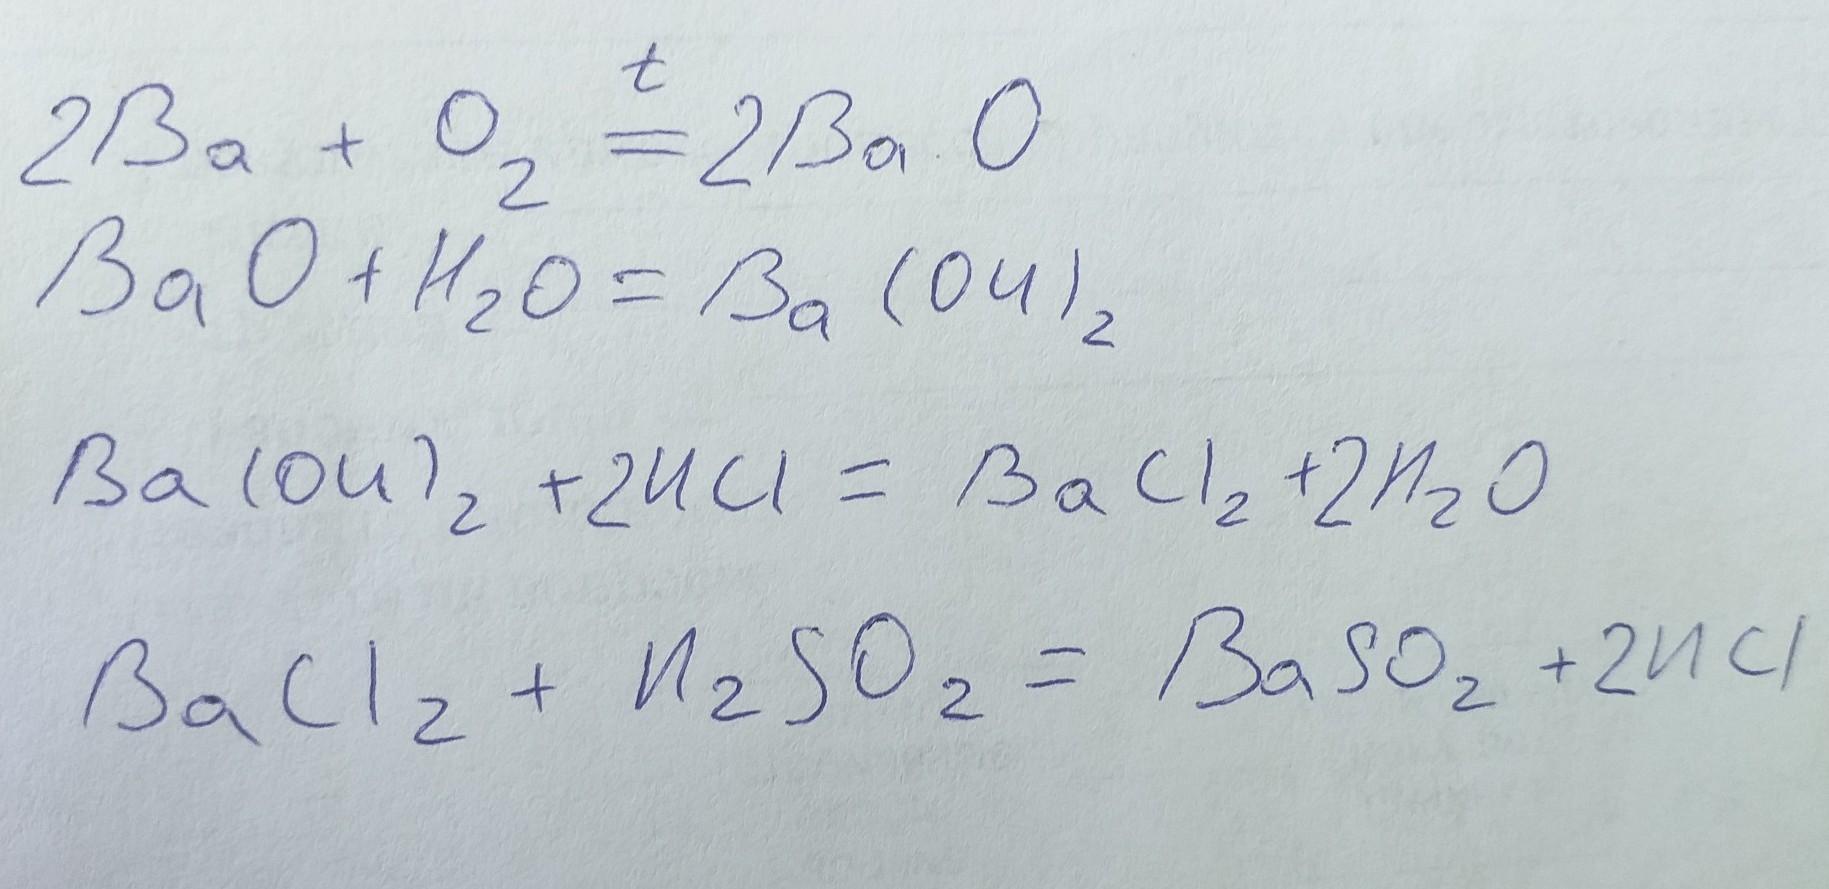 2Ba + O₂ =ᵗ 2BaO
BaO + H₂O = Ba(OH)₂
Ba(OH)₂ + 2HCl = BaCl₂ + 2H₂O
BaCl₂ + H₂SO₂ = BaSO₂ + 2HCl